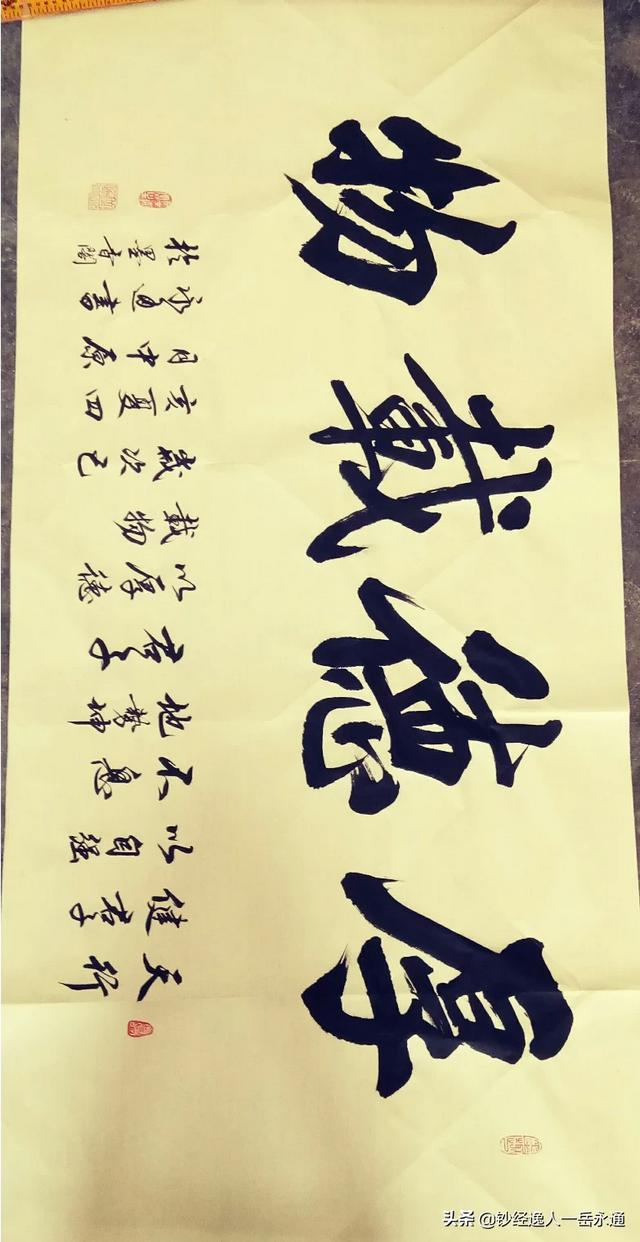 厚德載物
天行
健君子
以自強
不息
地勢坤
君子
以厚德
載物
歲次己
亥夏四
月中原
永通書
於墨香閣
头条 @钞经逸人一岳永通